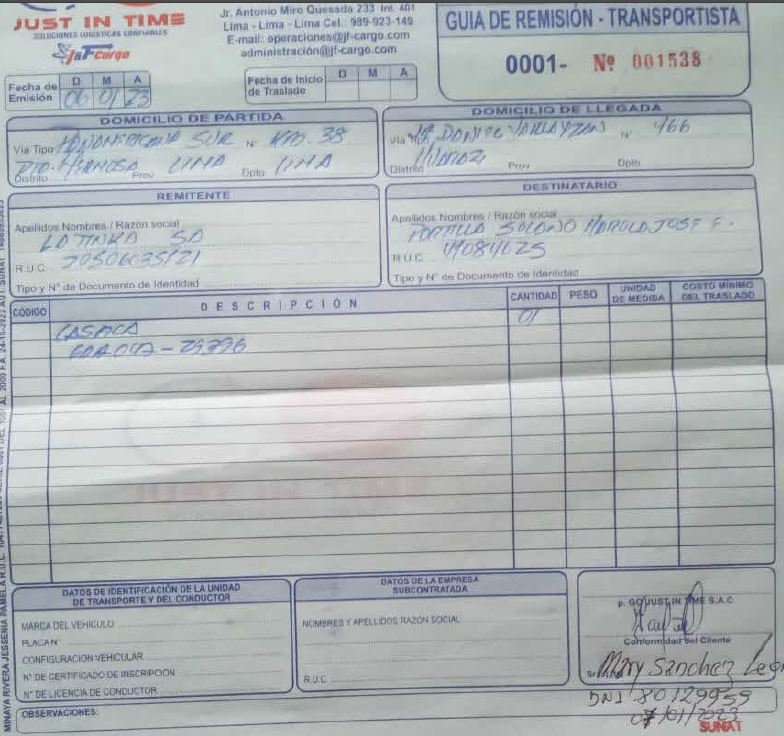 JUST IN TIME
SOLUCIONES LOGISTICAS CONFIABLES
J&F Cargo
Jr. Antonio Miro Quesada 233 Int. 401
Lima - Lima - Lima Cel.: 989-923-149
E-mail: operaciones@jf-cargo.com
administración@jf-cargo.com
GUIA DE REMISIÓN - TRANSPORTISTA
0001- Nº 001538
Fecha de Emisión D M A
06 01 23
Fecha de Inicio de Traslade D M A
DOMICILIO DE PARTIDA
Via Tipo PANAMERICANA SUR Nº KM. 38
PTO. HERMOSA LIMA LIMA
Distrito Prov Dpto
DOMICILIO DE LLEGADA
Via Nº 466
Distrito HUARAZ Prov Dpto
REMITENTE
Apellidos Nombres / Razón social
LA TINKA SA
R.U.C. 20506035121
Tipo y N° de Documento de Identidad
DESTINATARIO
Apellidos Nombres / Razón social
PORTILLA SOLANO HAROLD JOSE F.
R.U.C.
Tipo y N° de Documento de Identidad
CÓDIGO DESCRIPCIÓN CANTIDAD PESO UNIDAD DE MEDIDA COSTO MINIMO DEL TRASLADO
CASACA 01
29396
DATOS DE IDENTIFICACIÓN DE LA UNIDAD
DE TRANSPORTE Y DEL CONDUCTOR
MARCA DEL VEHICULO
PLACA N°
CONFIGURACION VEHICULAR
N° DE CERTIFICADO DE INSCRIPCIÓN
N° DE LICENCIA DE CONDUCTOR
DATOS DE LA EMPRESA
SUBCONTRATADA
NOMBRES Y APELLIDOS RAZÓN SOCIAL
R.U.C.
JUST IN TIME S.A.C
Conformidad del Cliente
Mary Sanchez Leon
DNI 80129959
07/01/2023
SUNAT
OBSERVACIONES:
MINAYA RIVERA JESSENIA PAMELA R.U.C.